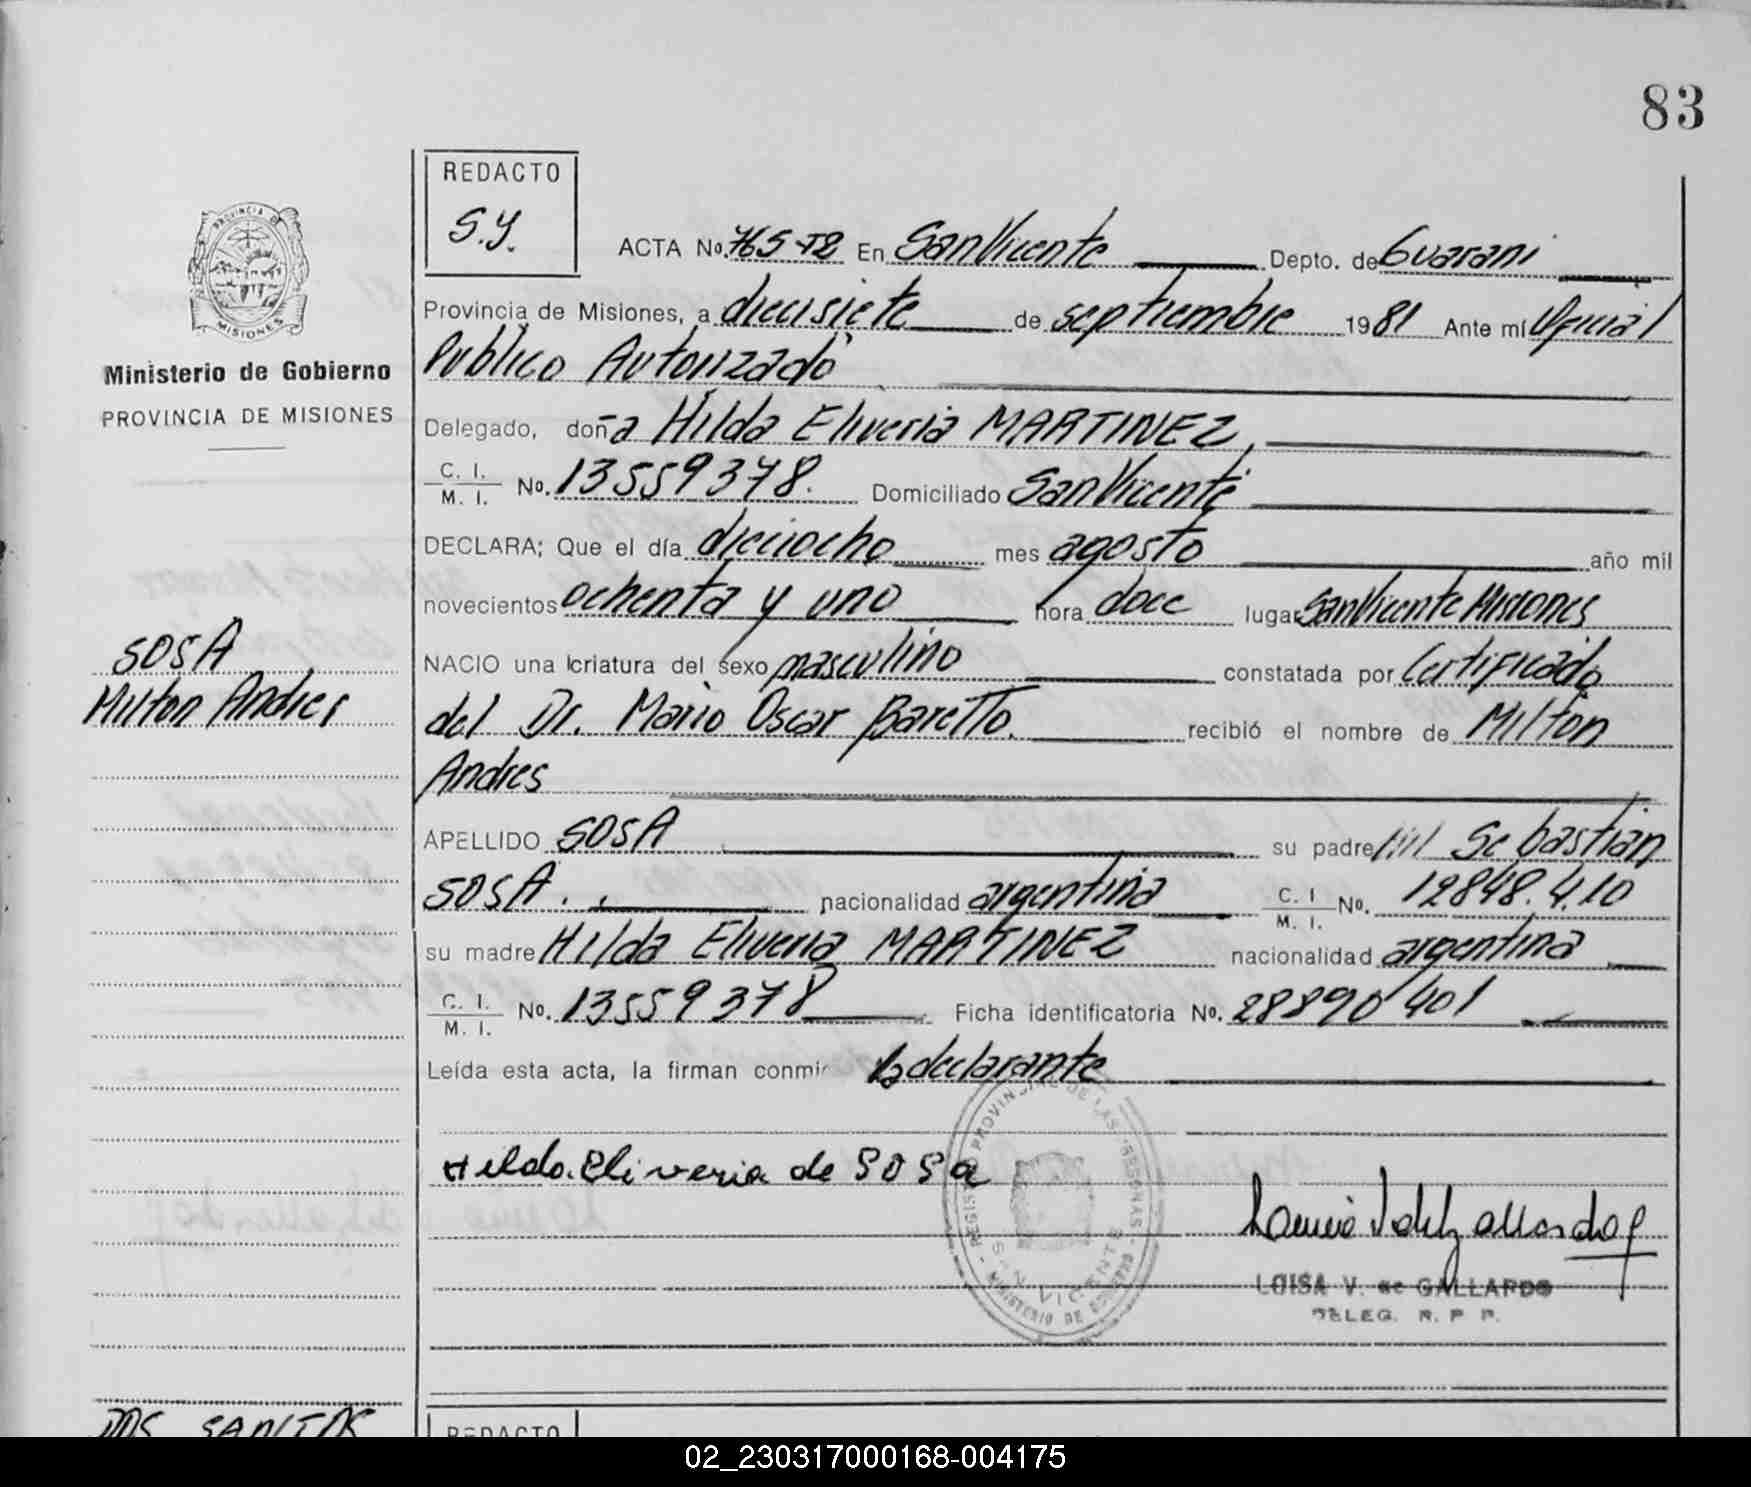 83
REDACTO
S.Y.
ACTA No. 765 T2 En San Vicente Depto. de Guarani
Provincia de Misiones, a diecisiete de septiembre 1981 Ante mí Oficial
Publico Autorizado
Delegado, doña Hilda Eliveria MARTINEZ,
C. I.
M. I. No. 13559378. Domiciliado San Vicente
DECLARA; Que el día dieciocho mes agosto año mil
novecientos ochenta y uno hora doce lugar San Vicente Misiones
NACIO una criatura del sexo masculino constatada por Certificado
del Dr. Mario Oscar Baretto. recibió el nombre de Milton
Andres
APELLIDO SOSA su padre Sebastian
SOSA. nacionalidad argentina C. I
M. I. No. 12848.410
su madre Hilda Eliveria MARTINEZ nacionalidad argentina
C. I.
M. I. No. 13559378 Ficha identificatoria No. 28890401
Leída esta acta, la firman conmi la declarante
Hilda Eliveria de SOSa
LUISA V. de GALLARDO
DELEG. R. P. P.
REGISTRO PROVINCIAL DE LAS PERSONAS
SAN VICENTE
MINISTERIO DE GOBIERNO
PROVINCIA DE
MISIONES
Ministerio de Gobierno
PROVINCIA DE MISIONES
SOSA
Milton Andres
DOS SANTOS
REDACTO
02_230317000168-004175